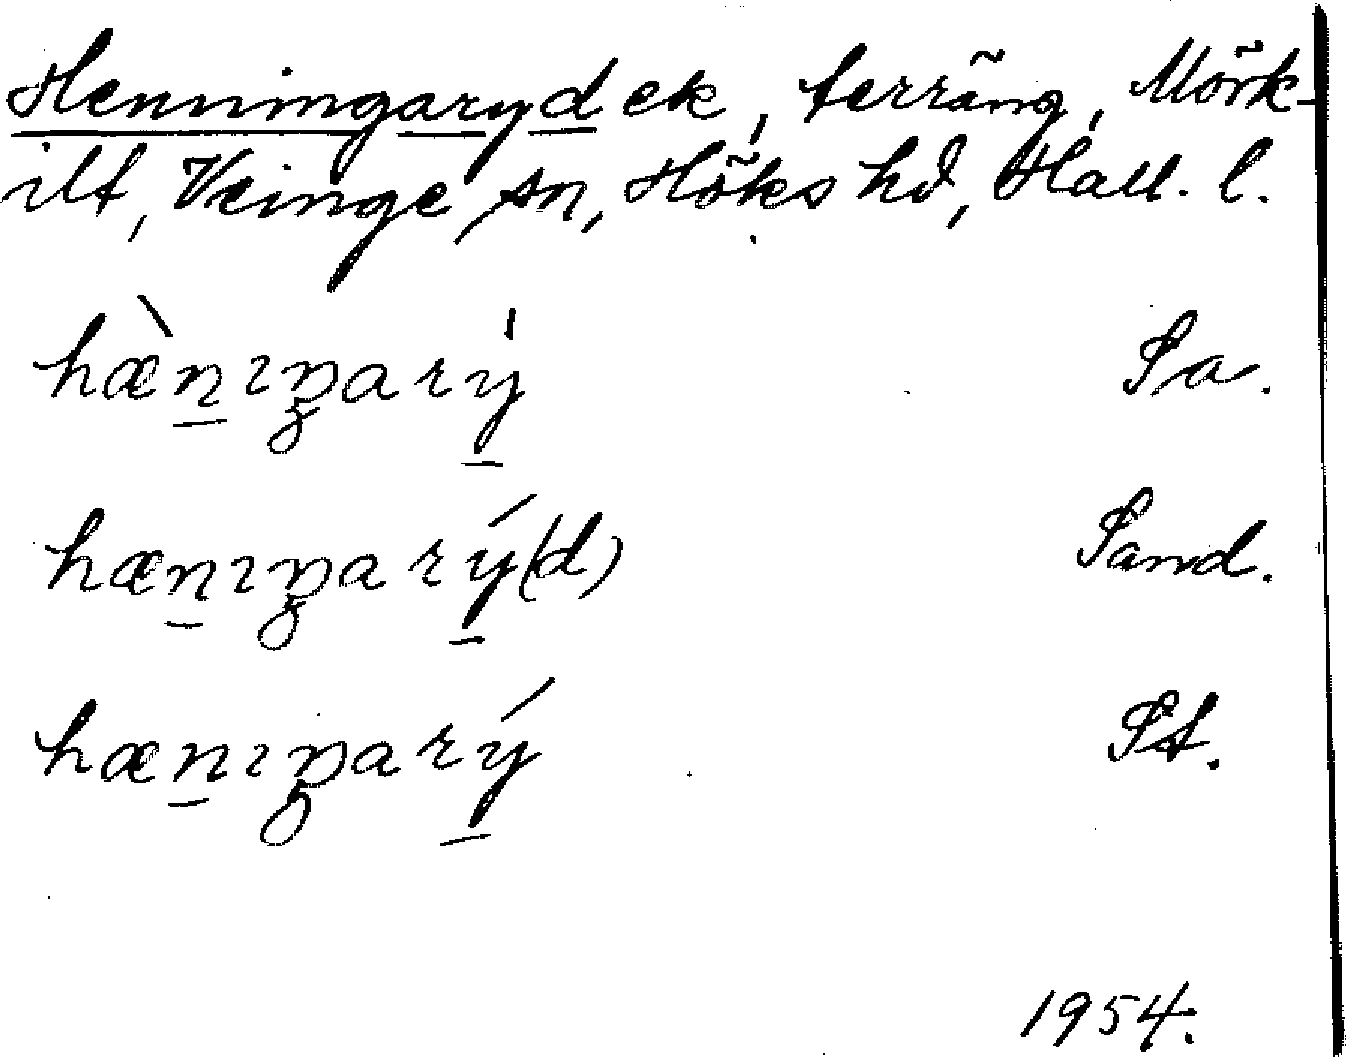 Henningaryd ek, terräng, Mörk-
ilt, Veinge sn, Höks hd, Hall. l.
hæ̀n̲ıŋarẏ̲ Sa.
hæn̲ıŋarý̲(d) Sand.
hæn̲ıŋarý̲ St.
1954.